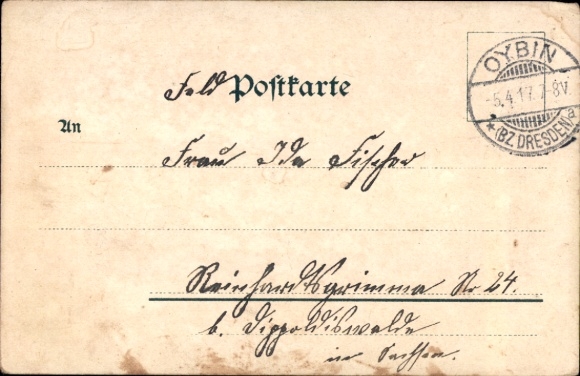 OYBIN
-5.4.17.7-8V.
* (BZ. DRESDEN) a
Feld Postkarte
An
Frau Ida Fischer
Reinhardtsgrimma Nr 24.
b. Dippoldiswalde
in Sachsen.